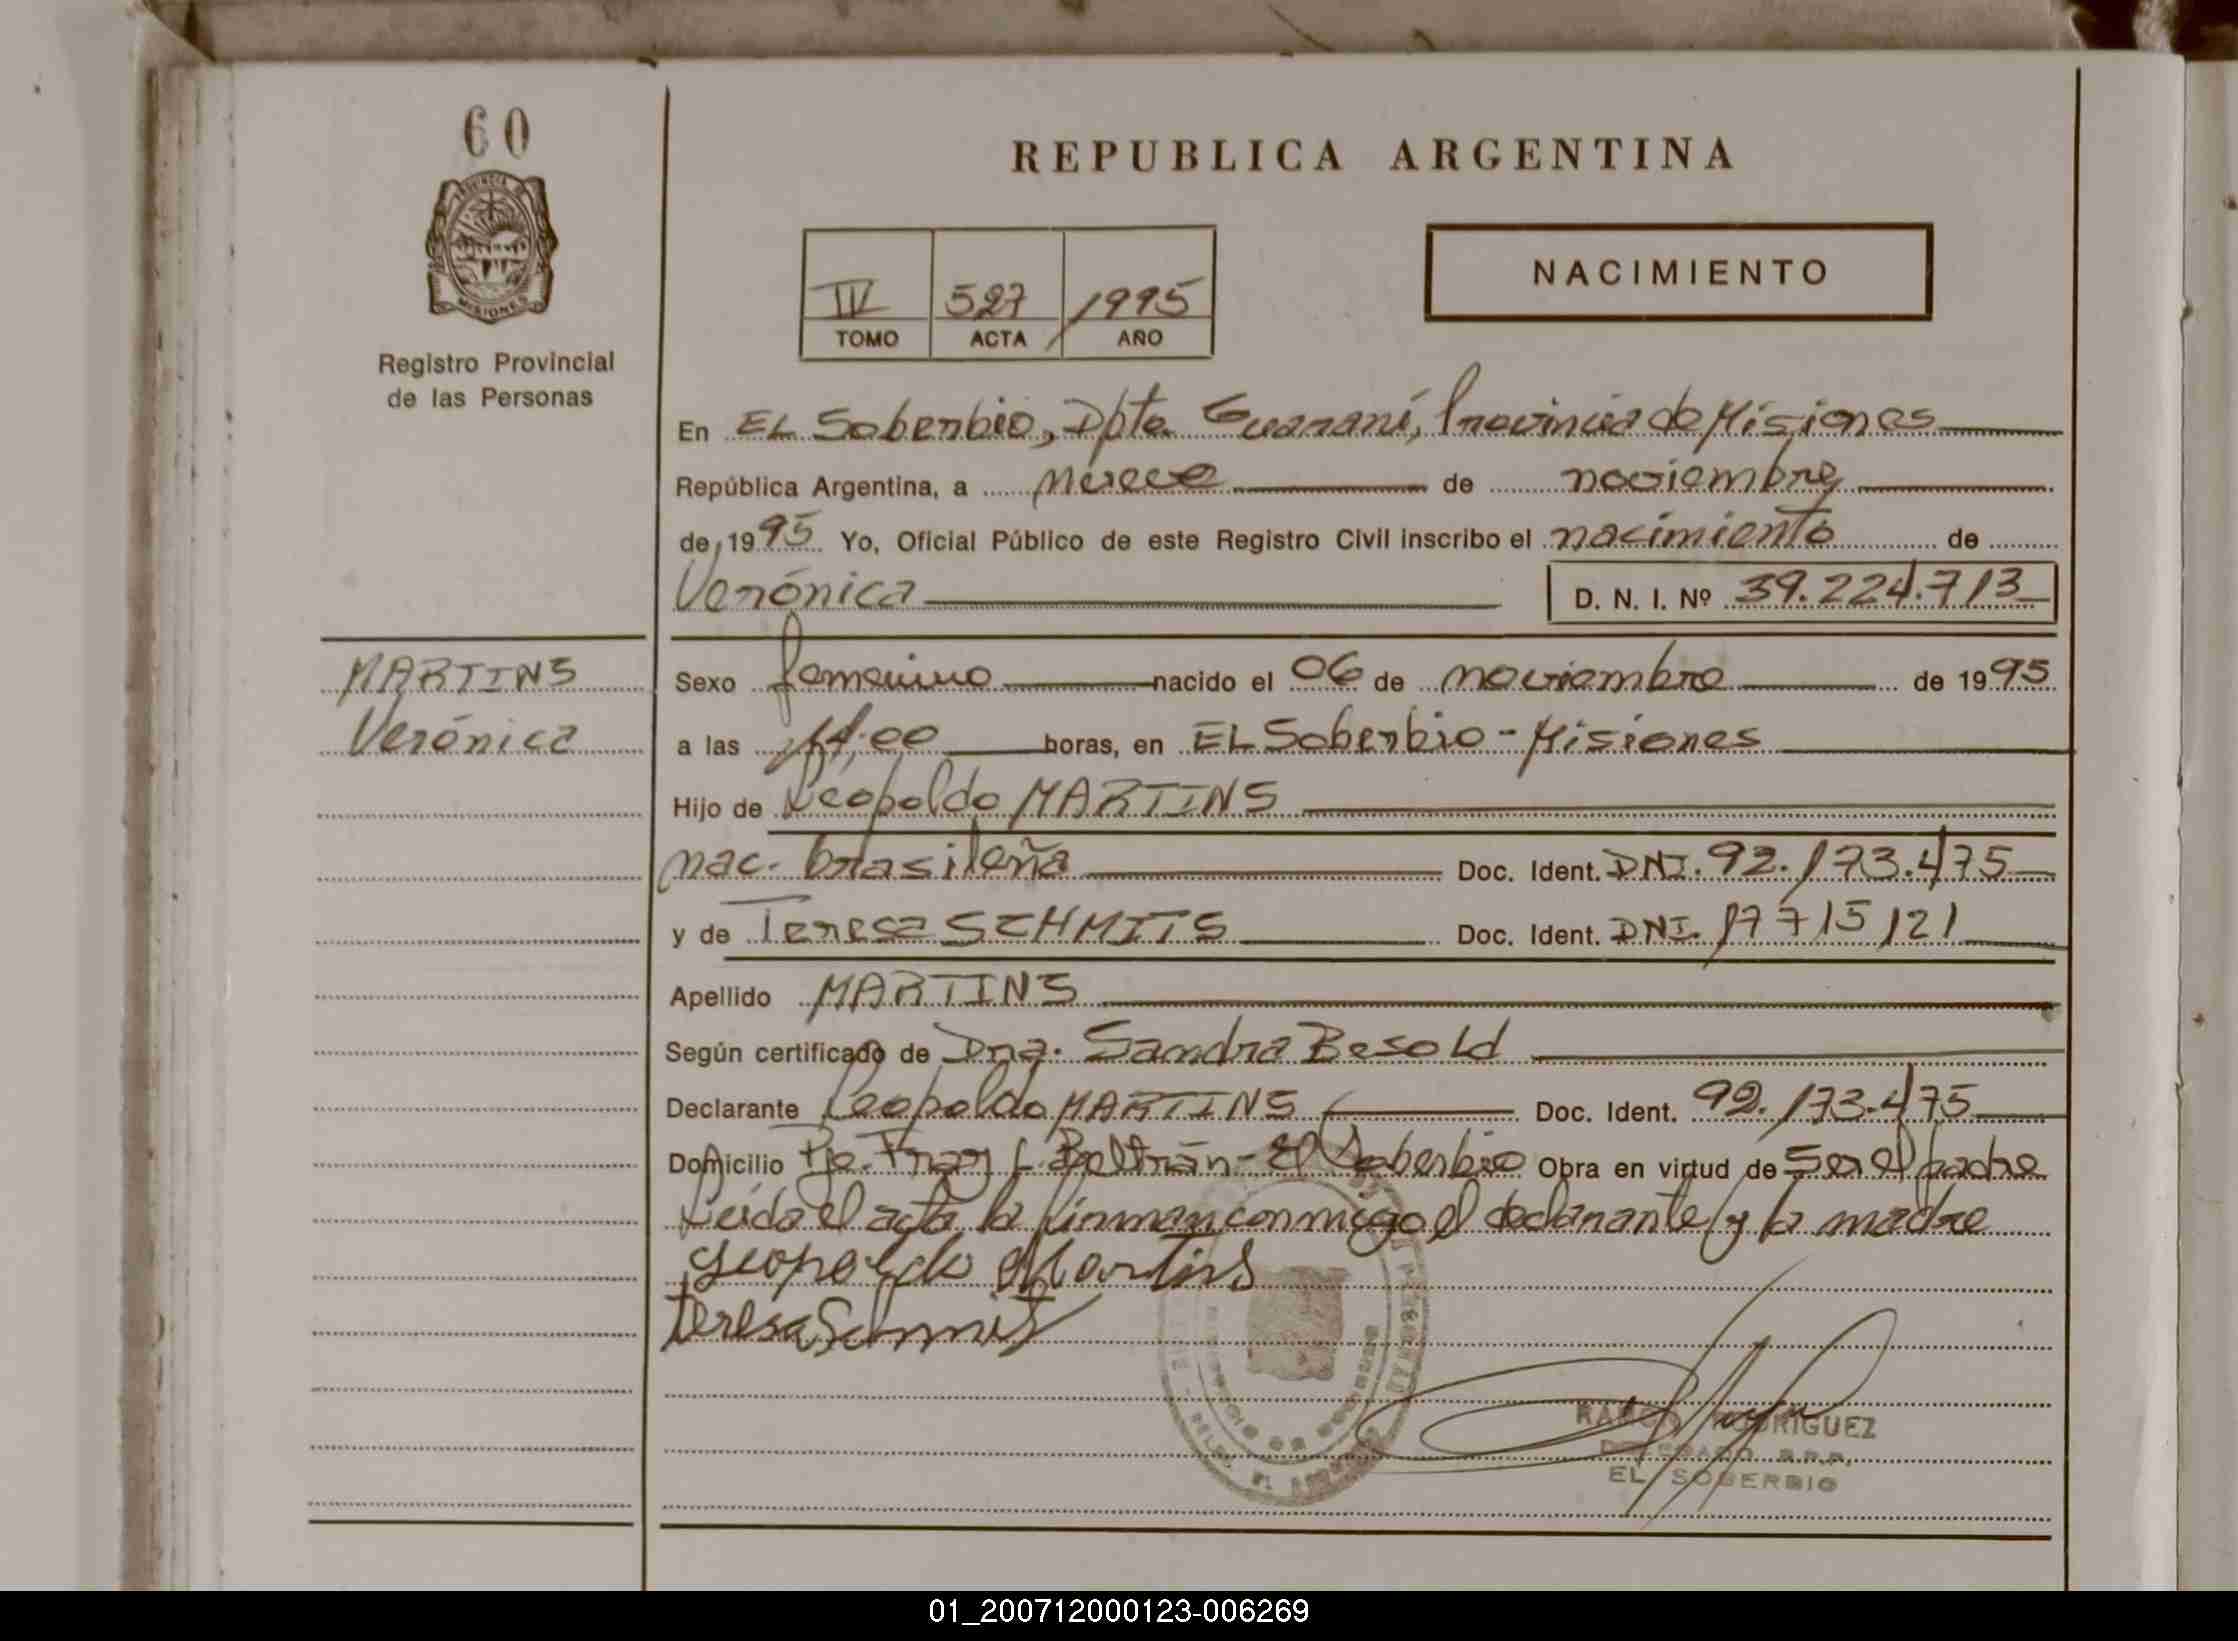 60
PROVINCIA DE
MISIONES
Registro Provincial
de las Personas
REPUBLICA ARGENTINA
IV 527 1995
TOMO ACTA AÑO
NACIMIENTO
En EL Soberbio, Dpto. Guaraní, Provincia de Misiones
República Argentina, a nueve de noviembre
de 1995 Yo, Oficial Público de este Registro Civil inscribo el nacimiento de
Verónica D. N. I. Nº 39.224.713
MARTINS
Verónica
Sexo femenino nacido el 06 de noviembre de 1995
a las 11,00 horas, en EL Soberbio - Misiones
Hijo de Leopoldo MARTINS
nac. brasileña Doc. Ident. DNI. 92.173.475
y de Teresa SCHMITS Doc. Ident. DNI. 17715121
Apellido MARTINS
Según certificado de Dra. Sandra Besold
Declarante Leopoldo MARTINS Doc. Ident. 92.173.475
Domicilio Pje. Fray L. Beltrán - El Soberbio Obra en virtud de ser el padre
Leída el acta la firman conmigo el declarante y la madre
Leopoldo Martins
Teresa Schmits
RODRIGUEZ
DELEGADO R.P.P.
EL SOBERBIO
01_200712000123-006269